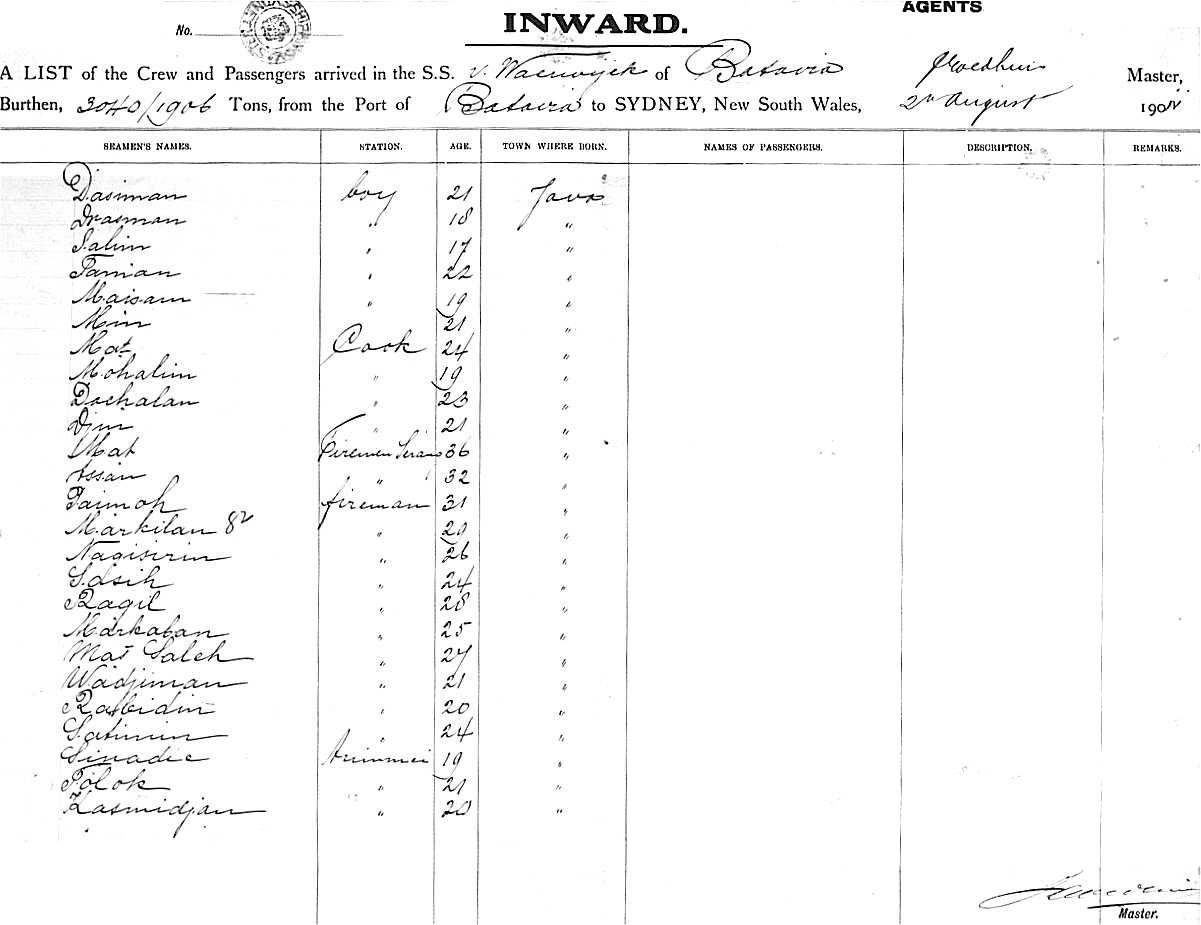 AGENTS
No.
INWARD.
A LIST of the Crew and Passengers arrived in the S.S. v. Waerwijck of Batavia Master,
Burthen, 3040/1906 Tons, from the Port of Batavia to SYDNEY, New South Wales, 2n August 190
SEAMEN'S NAMES. STATION. AGE. TOWN WHERE BORN. NAMES OF PASSENGERS. DESCRIPTION. REMARKS.
Dasiman boy 21 Java
Drasman " 18 "
Salim " 17 "
Taniman " 22 "
Maisam " 19 "
Min 21 "
Mat Cook 24 "
Mohalim " 19 "
Dochalan " 23 "
Djin " 21 "
Mat Firemen Seran 36 "
Assan " 32 "
Taimoh fireman 31 "
Markilan 82 " 20 "
Nagisirin " 26 "
Sasih " 24 "
Ragil " 28 "
Markaban " 25 "
Mat Saleh " 27 "
Wadjiman " 21 "
Rabidin " 20 "
Satimin " 24 "
Sinadie trimmer 19 "
Polok " 21 "
Kasmidjan " 20 "
Master.